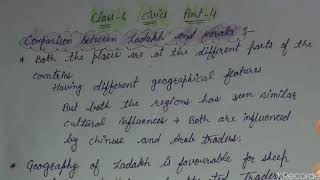 Class-6 Civics Part-4
Comparison between Ladakh and Kerala :-
* Both the places are at the different parts of the
countries
Having different geographical features
But both the regions has seen similar
cultural influences + Both are influenced
by chinese and Arab traders.
* Geography of Ladakh is favourable for sheep
Traders
XRecorder